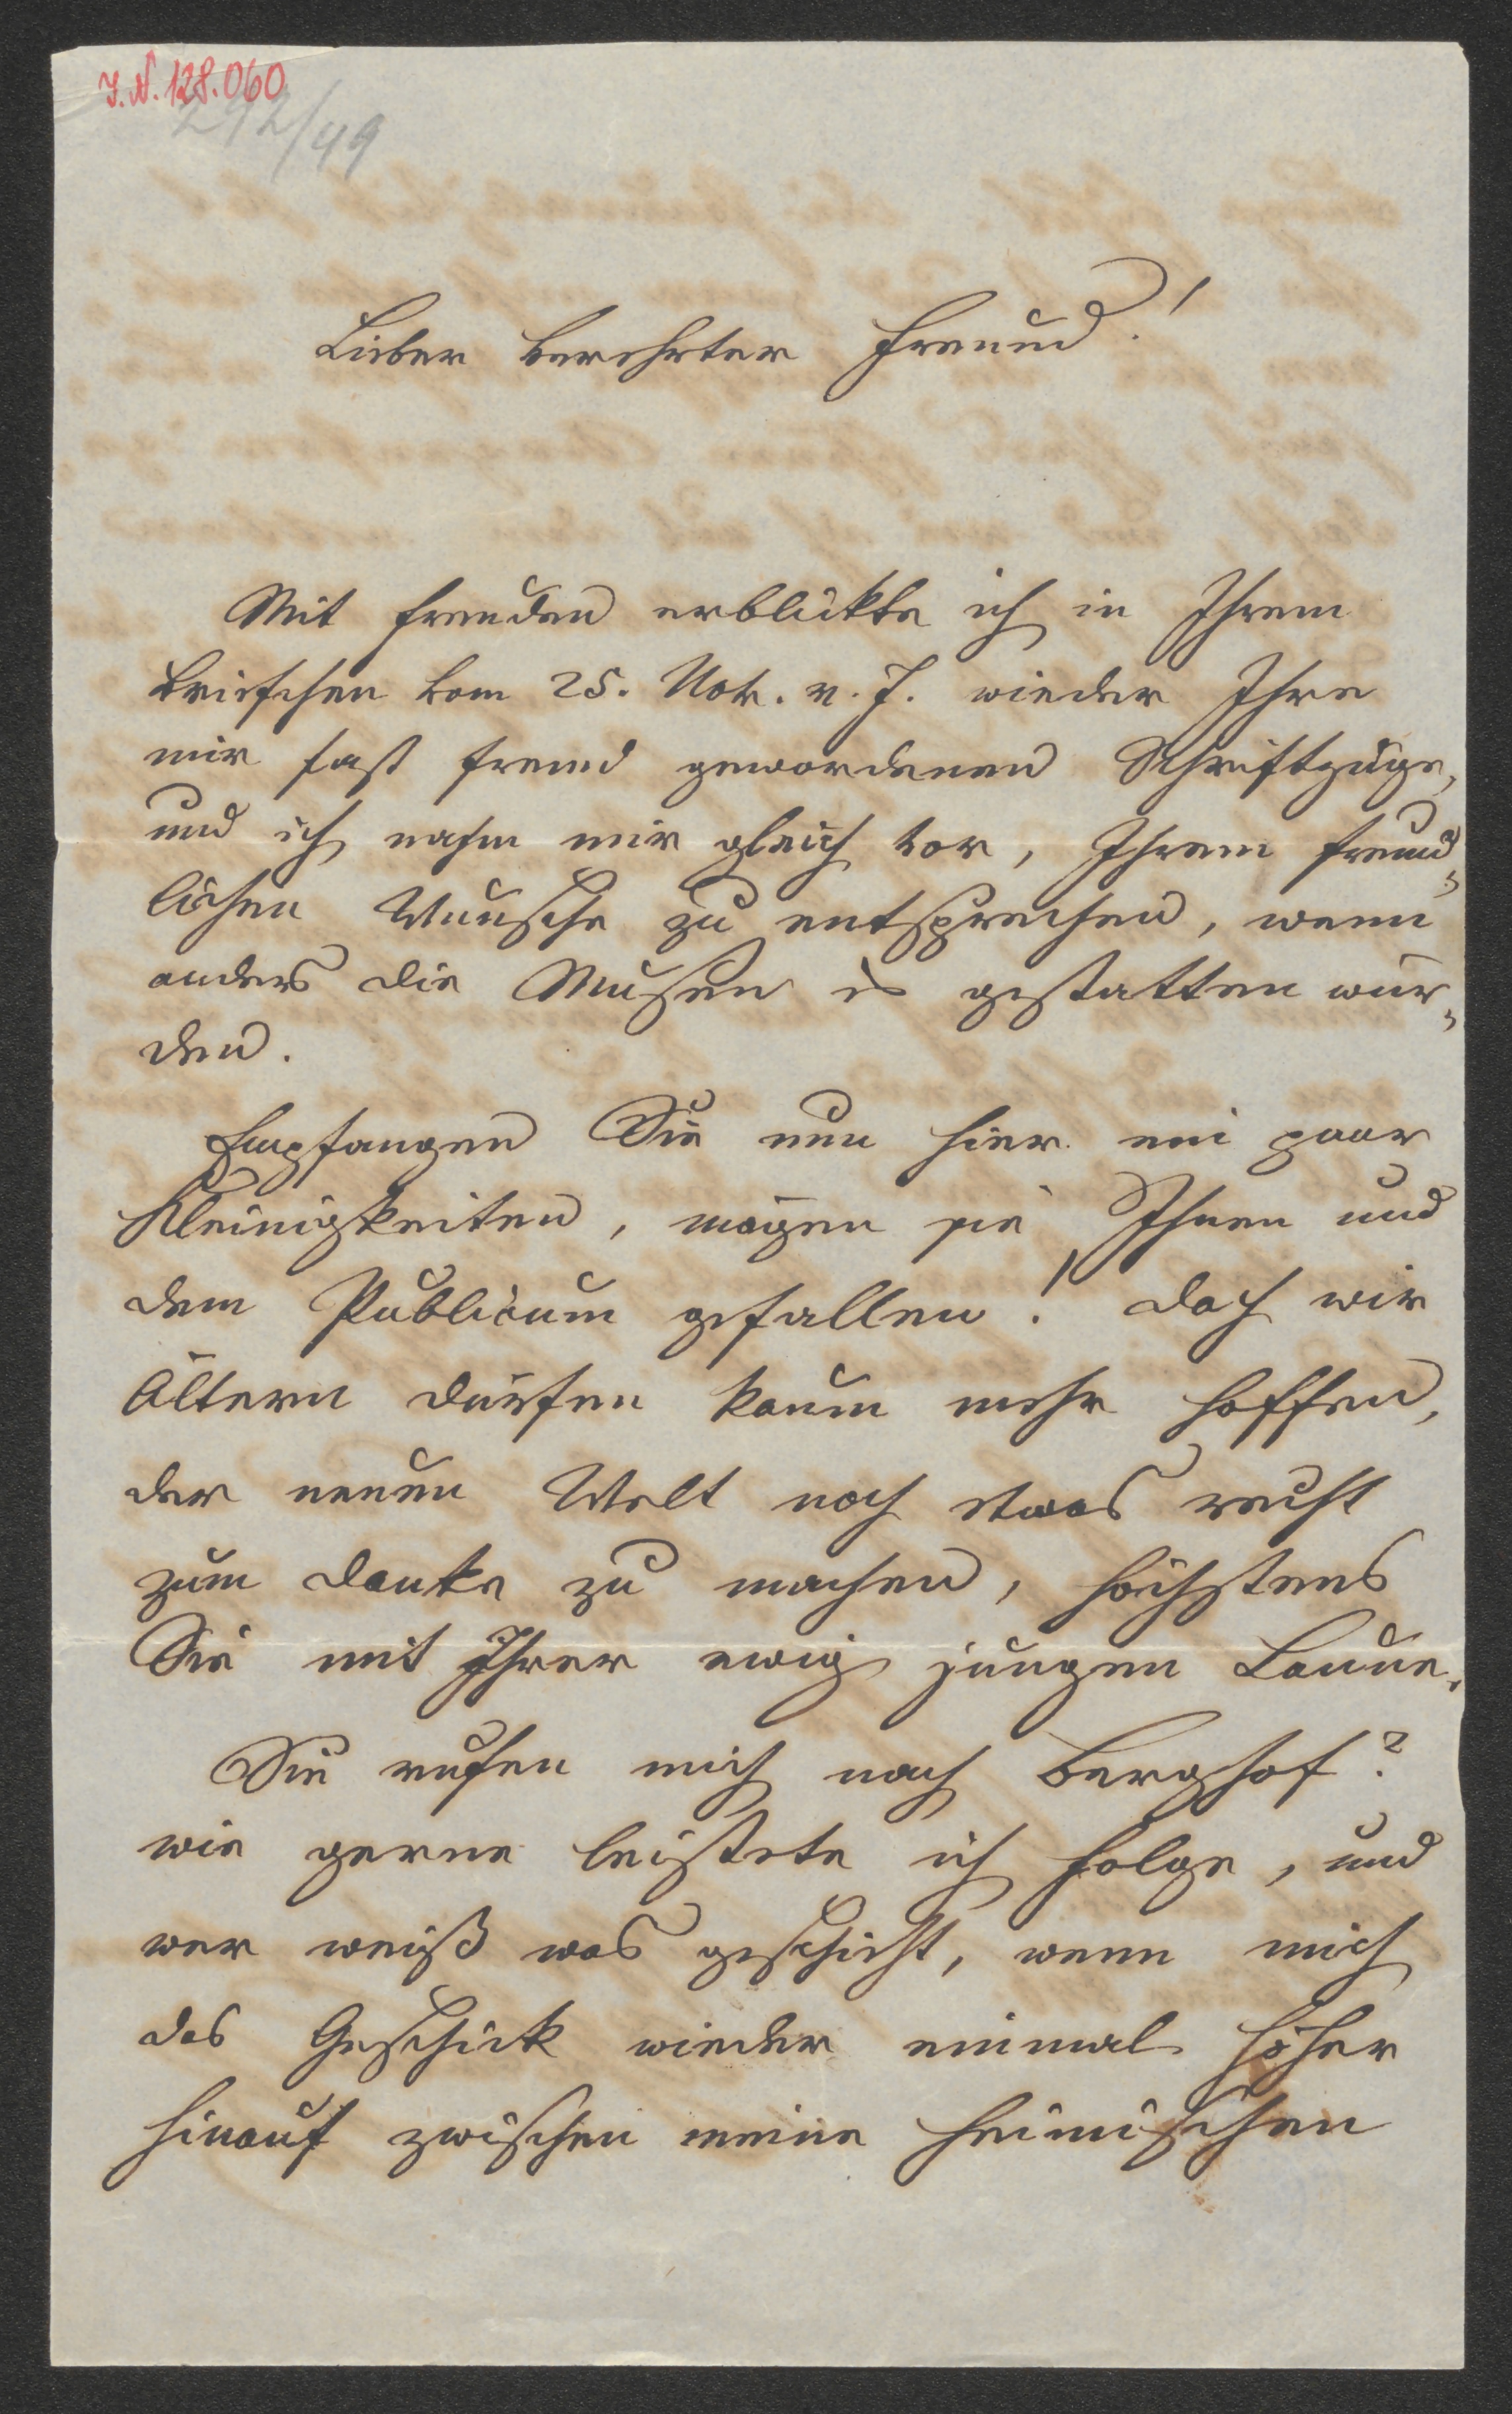 I.N. 128.060
292/49
Lieber verehrter Freund!
Mit Freuden erblickte ich in Ihrem
Briefchen vom 25. Nov. v. J. wieder Ihre
mir fast fremd gewordenen Schriftzüge,
und ich nahm mir gleich vor, Ihrem freund„
lichen Wunsche zu entsprechen, wenn
anders die Musen es gestatten wür„
den.
Empfangen Sie nun hier ein paar
Kleinigkeiten, mögen sie Ihnen und
dem Publicum gefallen! Doch wir
Ältern dürfen kaum mehr hoffen,
der neuen Welt noch etwas recht
zum Danke zu machen, höchstens
Sie mit Ihrer ewig jungen Laune.
Sie rufen mich nach Berghof?
wie gerne leistete ich Folge, und
wer weiß was geschieht, wenn mich
das Geschick wieder einmal höher
hinauf zwischen meine heimischen